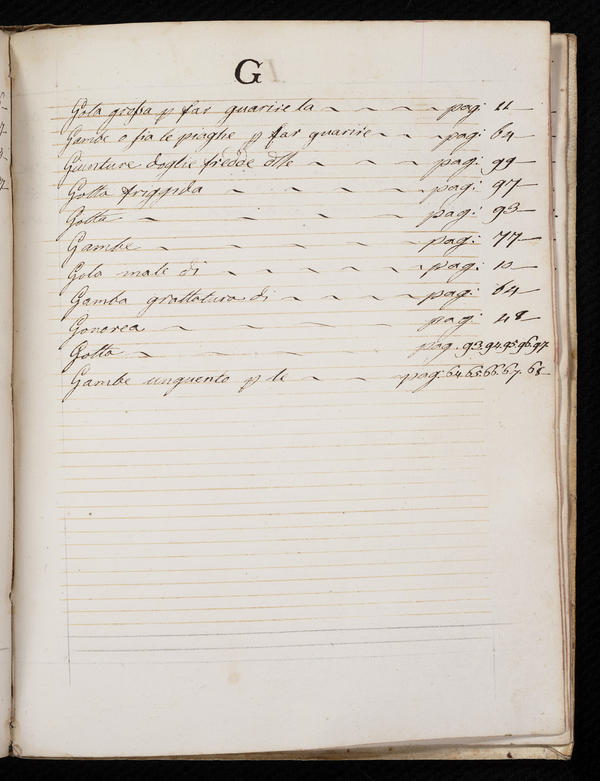 G
Gola grossa p far guarire la pag: 11
Gambe o sia le piaghe p far guarire pag: 64
Giunture doglie fredde dlle pag: 99
Gotta friggida pag: 97
Gotta pag: 93
Gambe pag: 77
Gola male di pag: 10
Gamba grattatura di pag: 64
Gonorea pag: 118
Gotta pag: 93.94.95.96.97
Gambe unguento p le pag: 64.65.66.67.68